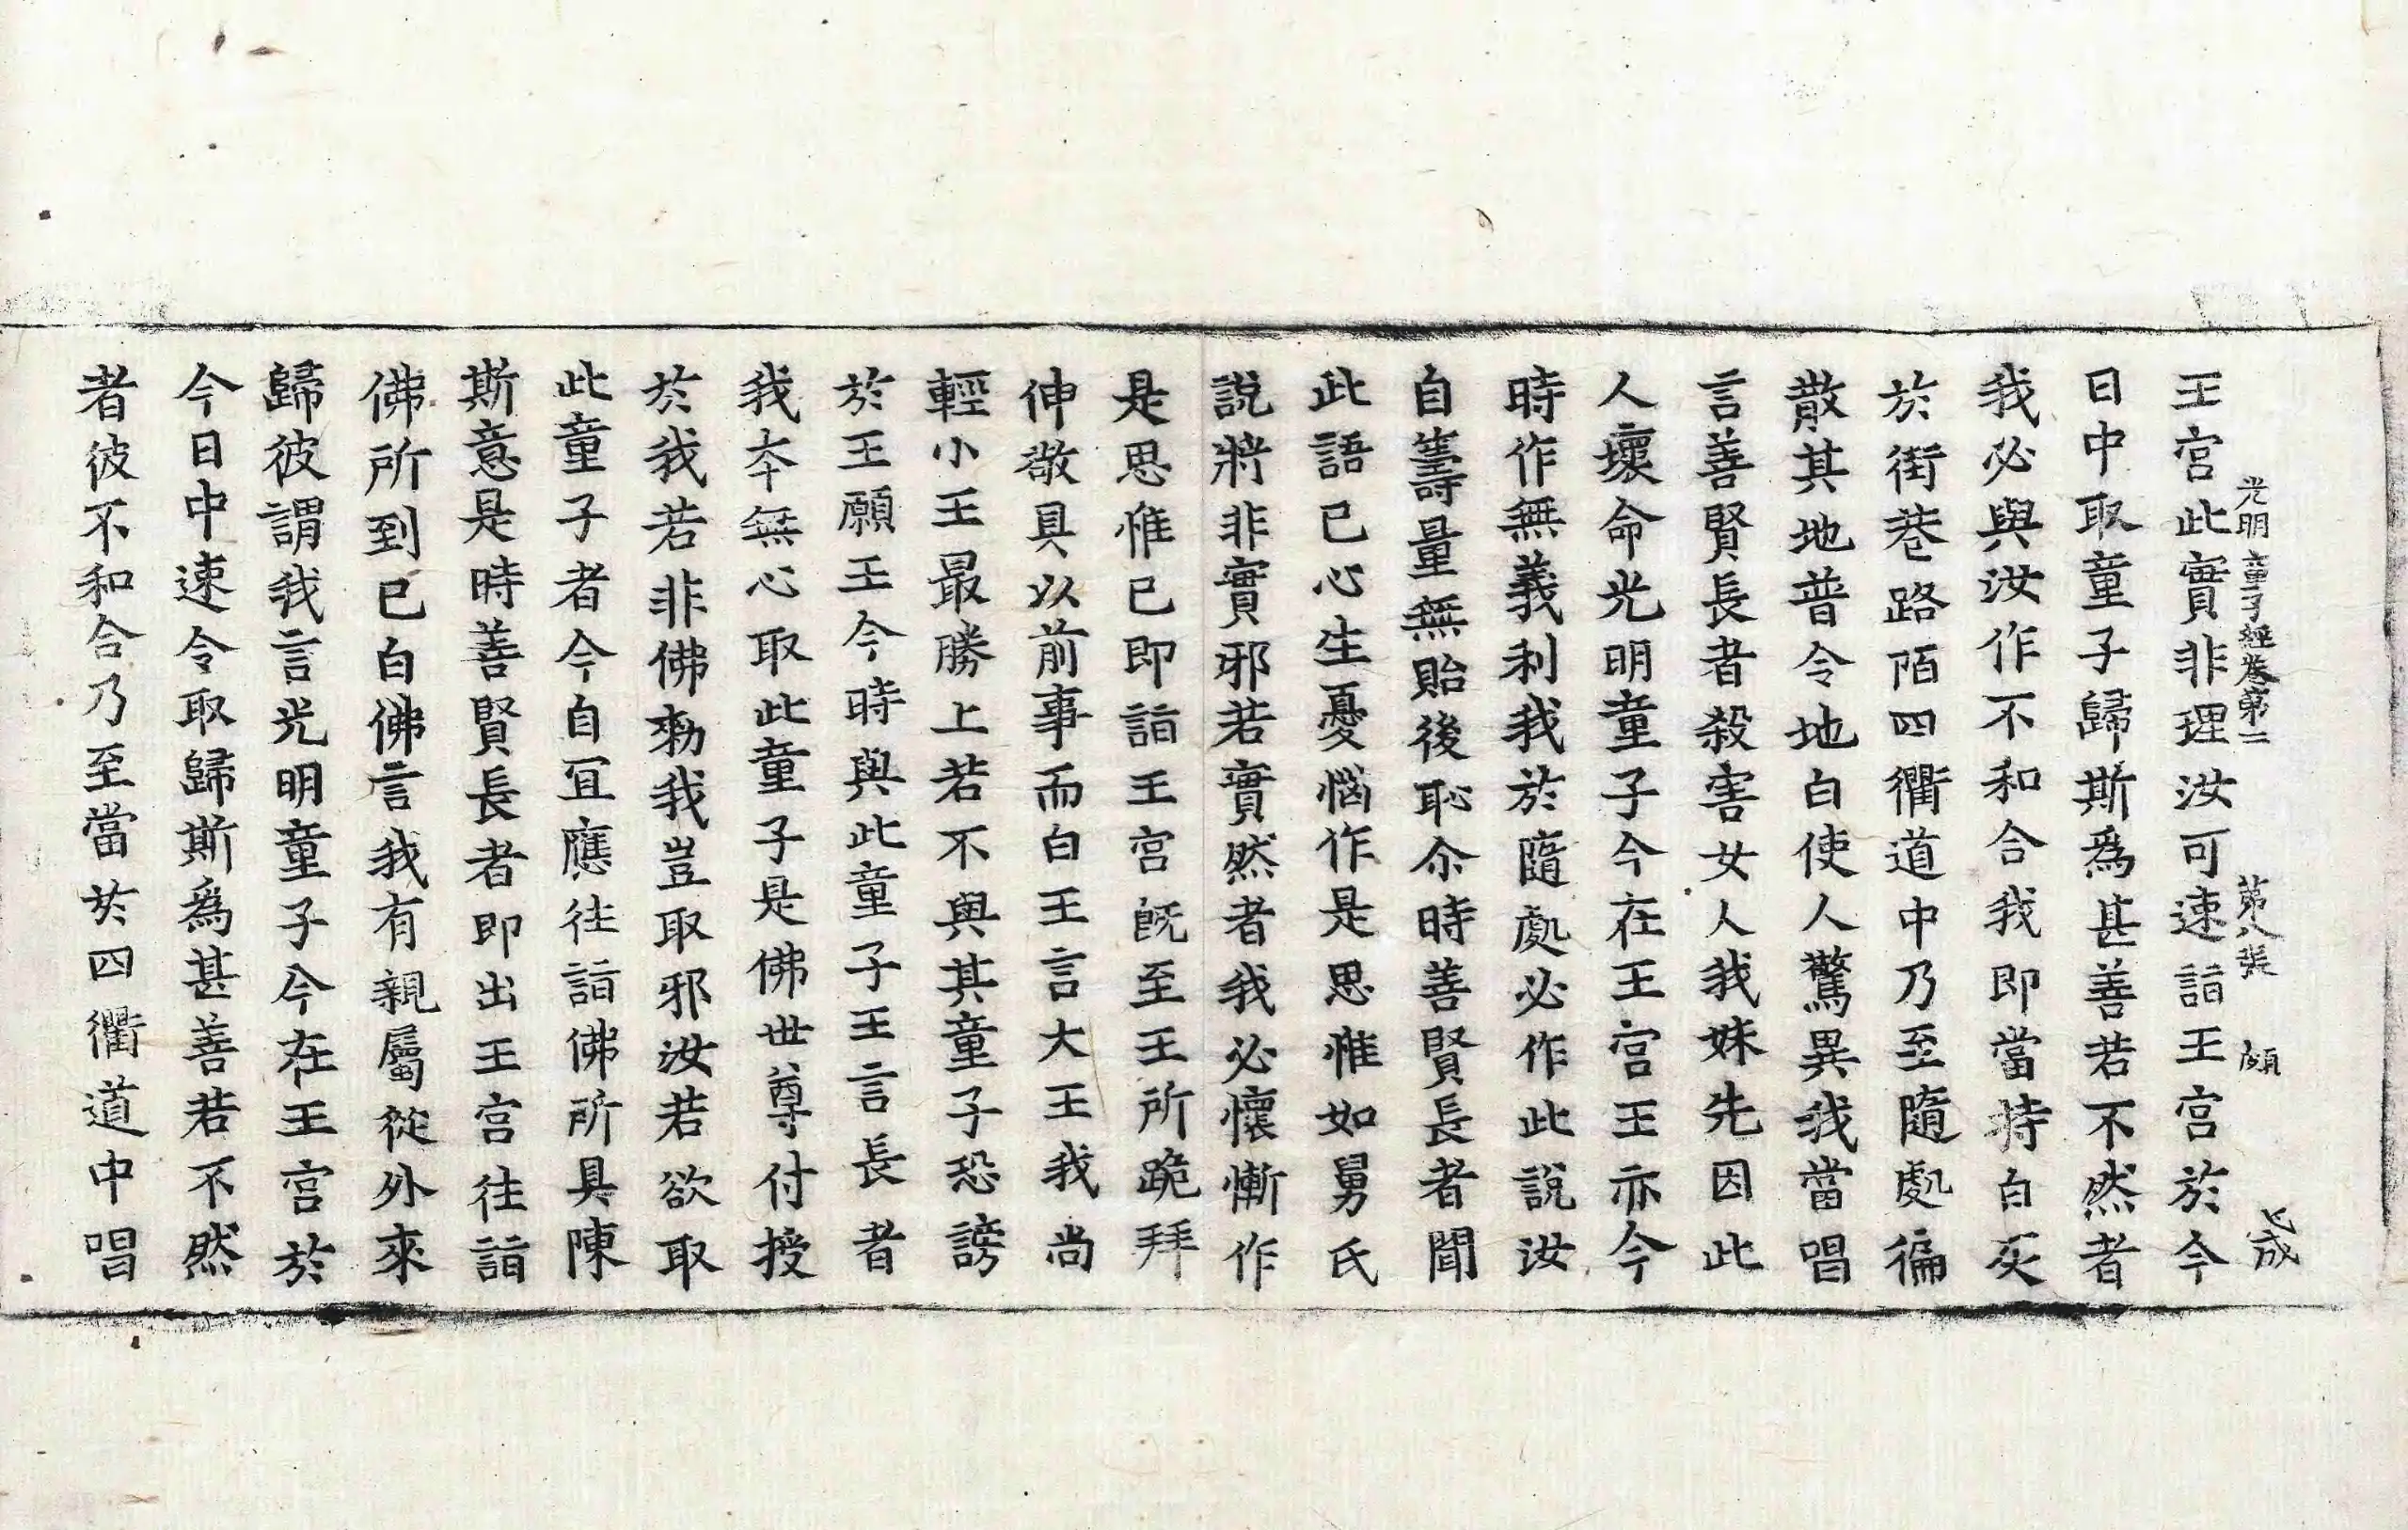 光明童子經卷第二 第八張 頗
王宮此實非理汝可速詣王宮於今
日中取童子歸斯爲甚善若不然者
我必與汝作不和合我即當持白灰
於街巷路陌四衢道中乃至隨處徧
散其地普令地白使人驚異我當唱
言善賢長者殺害女人我妹先因此
人壞命光明童子今在王宮王亦今
時作無義利我於隨處必作此說汝
自籌量無貽後恥尒時善賢長者聞
此語已心生憂惱作是思惟如舅氏
說將非實邪若實然者我必懷慚作
是思惟已即詣王宮旣至王所跪拜
伸敬具以前事而白王言大王我尚
輕小王最勝上若不與其童子恐謗
於王願王今時與此童子王言長者
我夲無心取此童子是佛世尊付授
於我若非佛勑我豈取邪汝若欲取
此童子者今自冝應往詣佛所具陳
斯意是時善賢長者即出王宮往詣
佛所到已白佛言我有親屬從外來
歸彼謂我言光明童子今在王宮於
今日中速令取歸斯爲甚善若不然
者彼不和合乃至當於四衢道中唱